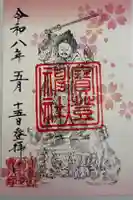 寶登山
神社
令和八年五月十五日登拝